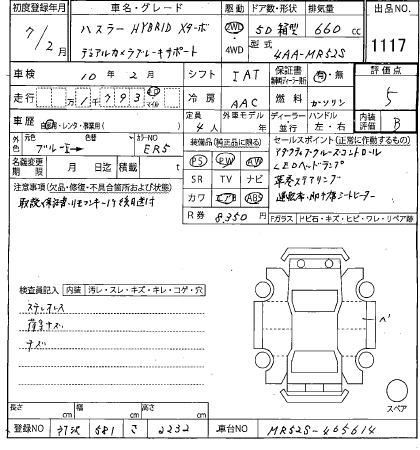 初度登録年月 車名・グレード 駆動 ドア数・形状 排気量 出品NO
7/2月 ハスラー HYBRID Xターボ 2WD 5D 箱型 660 cc
デュアルカメラブレーキサポート 4WD 型式 4AA-MR52S 1117
車検 10年 2月 シフト IAT 保証書 有・無 評価点
走行 万 1千 793 km マイル 冷房 AAC 燃料 ガソリン 5
車歴 自家用・レンタ・事業用( ) 定員 4人 外車モデル 年 ディーラー 並行 ハンドル 左・右 内装評価 B
外色 元色 ブルーI 色替 カラーNO ER5 装備品(純正品に限る) セールスポイント(正常に作動するもの)
名義変更期限 月 日迄 積載 t PS PW AW アダプティブクルーズコントロール
LEDヘッドランプ
注意事項(欠品・修復・不具合箇所および状態) SR TV ナビ 革巻ステアリング
取説・保証書・リモコンキー1ケ後日送付 カワ エアB ABS 運転席・助手席シートヒーター
R券 8350
Fガラス トビ石・キズ・ヒビ・ワレ・リペア跡
検査員記入 内装 汚レ・スレ・キズ・キレ・コゲ・穴
薄キズ
キズ
スペア
長さ cm 幅 cm 高さ cm
登録NO 581 さ 2232 車台NO MR52S-465614